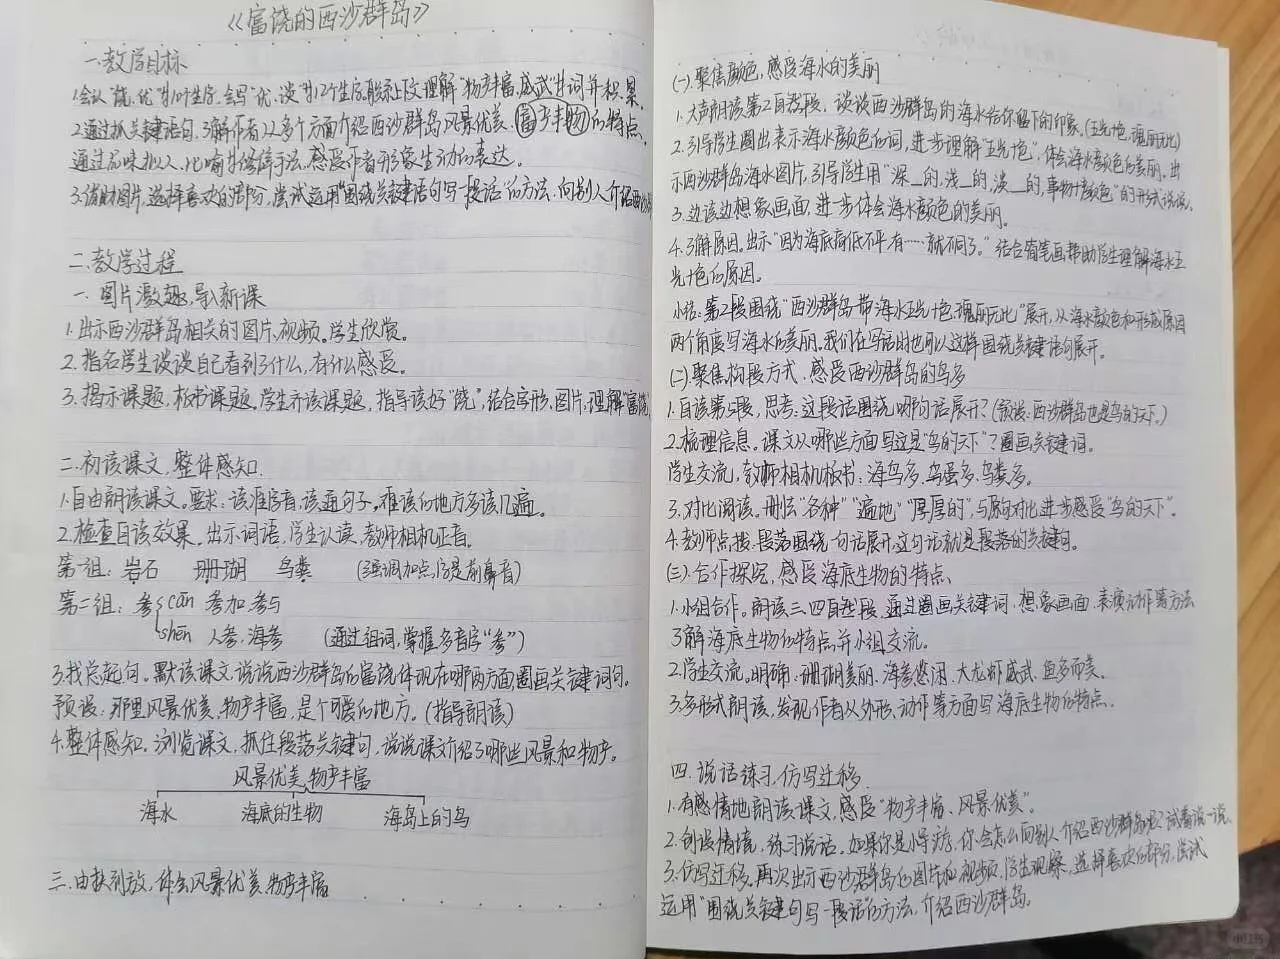 《富饶的西沙群岛》
一.教学目标
1.会认"饶、优"等10个生字,会写"优、淡"等12个生字,联系上下文理解"物产丰富,威武"等词并积累。
2.通过抓关键语句,了解作者从多个方面介绍西沙群岛风景优美,富产丰物的特点,
通过品味拟人、比喻等修辞手法,感受作者形象生动的表达。
3.借助图片,选择喜欢的部分,尝试运用"围绕关键语句写一段话"的方法,向别人介绍西沙
二.教学过程
一.图片激趣,导入新课
1.出示西沙群岛相关的图片,视频。学生欣赏。
2.指名学生谈谈自己看到了什么,有什么感受。
3.揭示课题,板书课题。学生齐读课题,指导读好"饶",结合字形,图片,理解"富饶"
二.初读课文,整体感知.
1.自由朗读课文。要求:读准字音,读通句子,难读的地方多读几遍。
2.检查自读效果。出示词语,学生认读,教师相机正音。
第一组:岩石 珊瑚 鸟粪 (强调加点字是前鼻音)
第二组:参 cān 参加,参与
shēn 人参,海参 (通过组词,掌握多音字"参")
3.找总起句。默读课文,说说西沙群岛的富饶体现在哪两方面,圈画关键词句。
预设:那里风景优美,物产丰富,是个可爱的地方。(指导朗读)
4.整体感知。浏览课文,抓住段落关键句,说说课文介绍了哪些风景和物产。
风景优美,物产丰富
海水 海底的生物 海岛上的鸟
三.由扶到放,体会风景优美,物产丰富
(一).聚焦颜色,感受海水的美丽
1.大声朗读第2自然段,谈谈西沙群岛的海水给你留下的印象。(五光十色,瑰丽无比)
2.引导学生圈出表示海水颜色的词,进步理解"五光十色",体会海水颜色的美丽。出
示西沙群岛海水图片,引导学生用"深__的,浅__的,淡__的,事物+颜色"的形式说说。
3.边读边想象画面,进一步体会海水颜色的美丽。
4.了解原因。出示"因为海底高低不平有……就不同了。"结合简笔画帮助学生理解海水五
光十色的原因。
小结:第2段围绕"西沙群岛一带海水五光十色,瑰丽无比"展开,从海水颜色和形成原因
两个角度写海水的美丽。我们在写话时也可以这样围绕关键语句展开。
(二).聚焦构段方式,感受西沙群岛的鸟多
1.自读第5段,思考:这段话围绕哪句话展开?(预设:西沙群岛也是鸟的天下。)
2.梳理信息。课文从哪些方面写这是"鸟的天下"?圈画关键词。
学生交流,教师相机板书:海鸟多,鸟蛋多,鸟粪多。
3.对比阅读。删去"各种""遍地""厚厚的",与原句对比进步感受"鸟的天下"。
4.教师点拨:段落围绕一句话展开,这句话就是段落的关键句。
(三).合作探究,感受海底生物的特点、
1.小组合作。朗读三、四自然段,通过圈画关键词,想象画面,表演动作等方法
了解海底生物的特点,并小组交流。
2.学生交流,明确:珊瑚美丽,海参悠闲,大龙虾威武,鱼多而美。
3.多形式朗读,发现作者从外形、动作等方面写海底生物的特点.
四.说话练习,仿写迁移.
1.有感情地朗读课文,感受"物产丰富、风景优美"。
2.创设情境,练习说话。如果你是小导游,你会怎么向别人介绍西沙群岛呢?试着说一说、
3.仿写迁移。再次出示西沙群岛的图片和视频,学生观察,选择喜欢的部分,尝试
运用"围绕关键句写一段话"的方法,介绍西沙群岛。